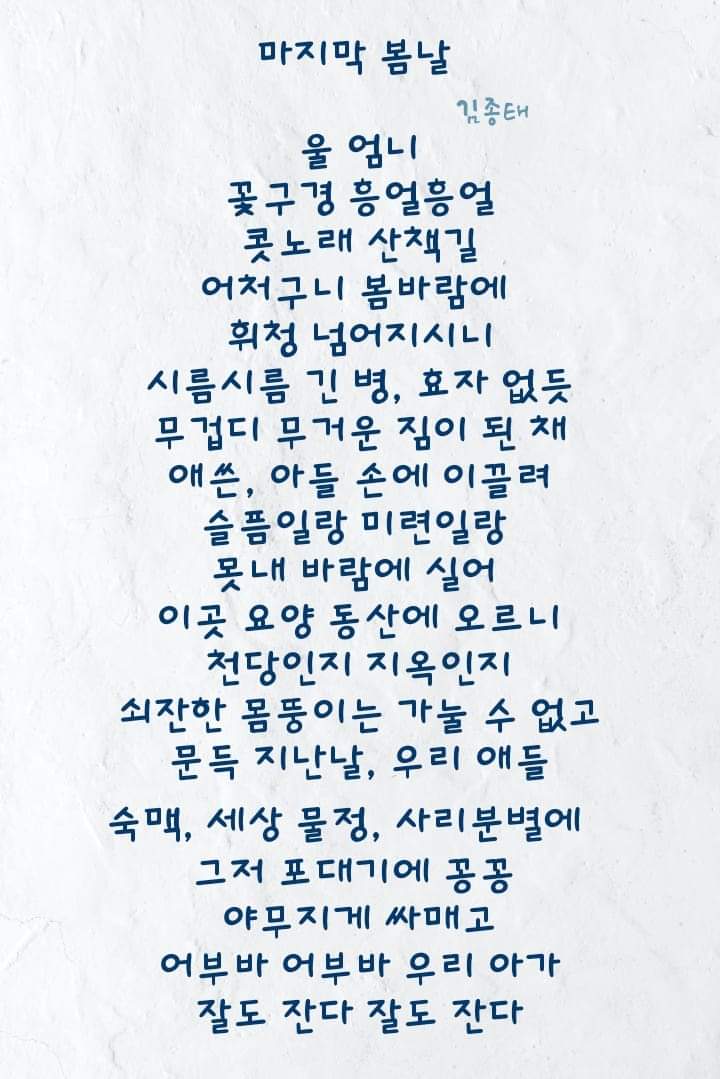 마지막 봄날
김종태
울 엄니
꽃구경 흥얼흥얼
콧노래 산책길
어처구니 봄바람에
휘청 넘어지시니
시름시름 긴 병, 효자 없듯
무겁디 무거운 짐이 된 채
애쓴, 아들 손에 이끌려
슬픔일랑 미련일랑
못내 바람에 실어
이곳 요양 동산에 오르니
천당인지 지옥인지
쇠잔한 몸뚱이는 가눌 수 없고
문득 지난날, 우리 애들
숙맥, 세상 물정, 사리분별에
그저 포대기에 꽁꽁
야무지게 싸매고
어부바 어부바 우리 아가
잘도 잔다 잘도 잔다